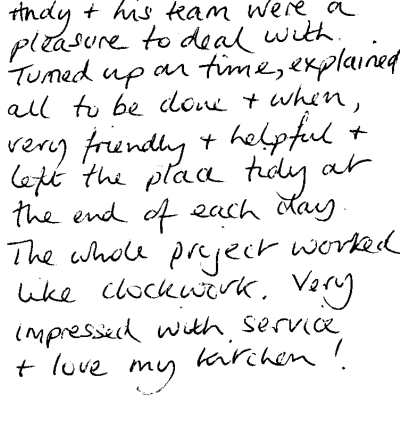 Andy + his team were a
pleasure to deal with.
Turned up on time, explained
all to be done + when,
very friendly + helpful +
left the place tidy at
the end of each day.
The whole project worked
like clockwork. Very
impressed with service
+ love my kitchen!